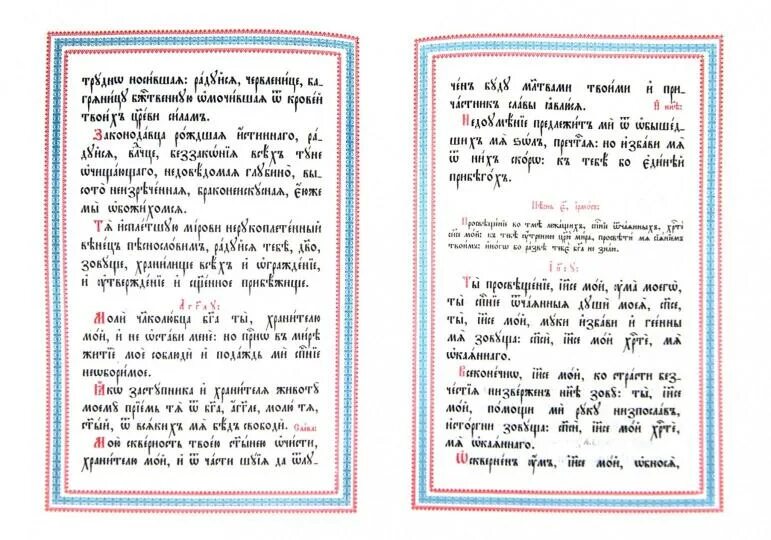 трꙋ́днѡ носи́вшаѧ: ра́дꙋйсѧ, червлени́це, ба-
гряни́цꙋ бж҃е́ственнꙋю ѡ҆мочи́вшаѧ ѿ крове́й
твои́хъ цр҃е́ви си́ламъ.
Законода́вца ро́ждшаѧ и҆́стиннаго, ра́-
дꙋйсѧ, влⷣчце, беззакѡ́нїѧ всѣ́хъ тꙋ́не
ѡ҆чища́ющаго, недовѣ́домаѧ глꙋбино̀, вы-
сото̀ неизрече́ннаѧ, браконеискꙋ́снаѧ, є҆́юже
мы̀ ѡ҆божи́хомсѧ.
Тѧ̀ и҆спле́тшꙋю мі́рови нерꙋкоплете́нный
вѣне́цъ пѣснесло́вимъ, ра́дꙋйсѧ тебѣ̀, дв҃о,
зовꙋ́ще, храни́лище всѣ́хъ и҆ ѡ҆гражде́нїе,
и҆ ᲂу҆твержде́нїе и҆ сщ҃е́нное прибѣ́жище.
А҆́гг҃лꙋ:
Молѝ чл҃вѣколю́бца бг҃а ты̀, храни́телю
мо́й, и҆ не ѡ҆ста́ви менѐ: но при́снѡ въ ми́рѣ
житїѐ моѐ соблюдѝ и҆ пода́ждь мѝ сп҃се́нїе
невбори́мое.
Ꙗ҆́кѡ застꙋ́пника и҆ храни́телѧ животꙋ̀
моемꙋ̀ прїе́мь тѧ̀ ѿ бг҃а, а҆́гг҃ле, молю́ тѧ,
ст҃ы́й, ѿ всѧ́кихъ мѧ̀ бѣ́дъ свободѝ. Сла́ва:
Мою̀ скве́рность твое́ю ст҃ы́нею ѡ҆чи́сти,
храни́телю мо́й, и҆ ѿ ча́сти шꙋ́їѧ да ѿлꙋ-
че́нъ бꙋ́дꙋ мл҃твами твои́ми и҆ при-
ча́стникъ сла́вы ꙗ҆влю́сѧ.
И҆ ны́нѣ:
Недоꙋмѣ́нїе предлежи́тъ мѝ ѿ ѡ҆бышѣ́д-
шихъ мѧ̀ ѕѡ́лъ, пречⷭ҇таѧ: но и҆зба́ви мѧ̀
ѿ ни́хъ ско́рѡ: къ тебѣ́ бо є҆ди́нѣй
прибѣго́хъ.
Пѣ́снь є҃, і҆рмо́съ:
Просвѣще́нїе во тмѣ̀ лежа́щихъ, сп҃се́нїе ѿча́ѧнныхъ, хрⷭ҇тѐ
сп҃се мо́й: къ тебѣ̀ ᲂу҆́треннюю цр҃ю̀ ми́ра, просвѣти́ мѧ сїѧ́нїемъ
твои́мъ: и҆но́гѡ бо ра́звѣ тебє̀ бг҃а не зна́ю.
І҆и҃сꙋ:
Ты̀ просвѣще́нїе, і҆и҃се мо́й, ᲂу҆ма̀ моегѡ̀,
ты̀ сп҃се́нїе ѿча́ѧнныѧ дꙋшѝ моеѧ̀, сп҃се,
ты̀, і҆и҃се мо́й, мꙋ́ки и҆зба́ви и҆ гее́нны
мѧ̀ зовꙋ́ща: сп҃сѝ, і҆и҃се мо́й хрⷭ҇тѐ, мѧ̀
ѡ҆каѧ́ннаго.
Всеконе́чнѡ, і҆и҃се мо́й, ко страсте́м без-
че́стїѧ низве́рженъ ны́нѣ зовꙋ̀: ты̀, і҆и҃се
мо́й, по́мощи мѝ рꙋ́кꙋ низпосла́въ,
и҆сто́ргни зовꙋ́ща: сп҃сѝ, і҆и҃се мо́й хрⷭ҇тѐ,
мѧ̀ ѡ҆каѧ́ннаго.
Ѡ҆скверне́нъ ᲂу҆́мъ, і҆и҃се мо́й, ѡ҆бносѧ̀,